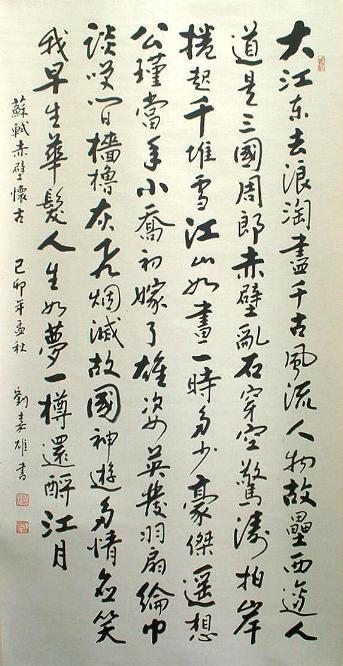 大江东去浪淘盡千古風流人物故壘西邊人
道是三國周郎赤壁亂石穿空驚濤拍岸
捲起千堆雪江山如畫一時多少豪傑遥想
公瑾當年小喬初嫁了雄姿英發羽扇綸巾
談笑間檣櫓灰飛烟滅故國神遊多情應笑
我早生華髮人生如夢一樽還酹江月
蘇軾赤壁懷古 己卯年孟秋 劉嘉雄書